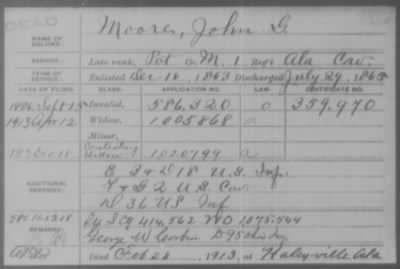 DEAD
Moore, John G.
NAME OF SOLDIER:
SERVICE: Late rank, Pvt Co. M. 1 Regt Ala Cav.
TERM OF SERVICE: Enlisted Dec 16, 1863 Discharged July 29, 1865
DATE OF FILING. CLASS. APPLICATION NO. LAW. CERTIFICATE NO.
1886 Sept 15 Invalid, 586,320 0 359,970
1913 Apr 12 Widow, 1005868 a
Minor,
1913 Dec 18 Contesting Widow 1020799 a
ADDITIONAL SERVICES: E 3 & D 18 U.S. Inf.
F & G 2 U.S. Cav
D 36 US Inf
REMARKS: 414,562 WO 1075,544
George W D 95 Ohio Inf
Died Feb 28, 1913, at Haleyville Ala